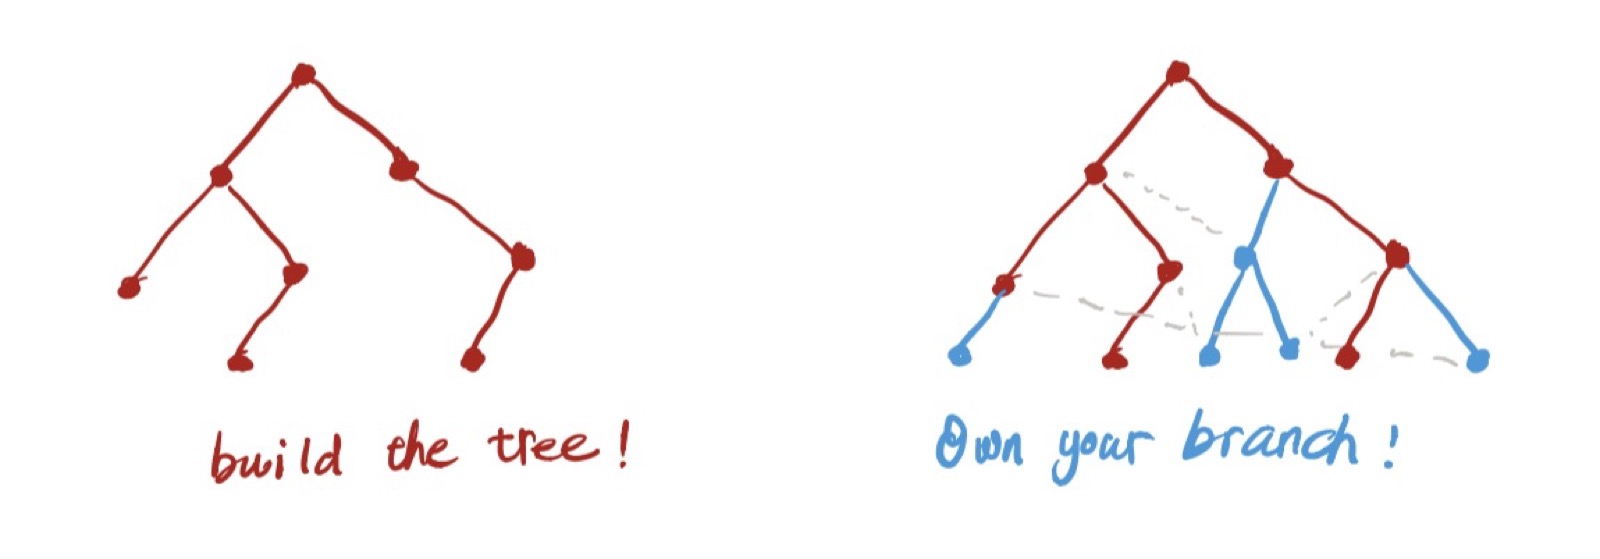 build the tree!
Own your branch!